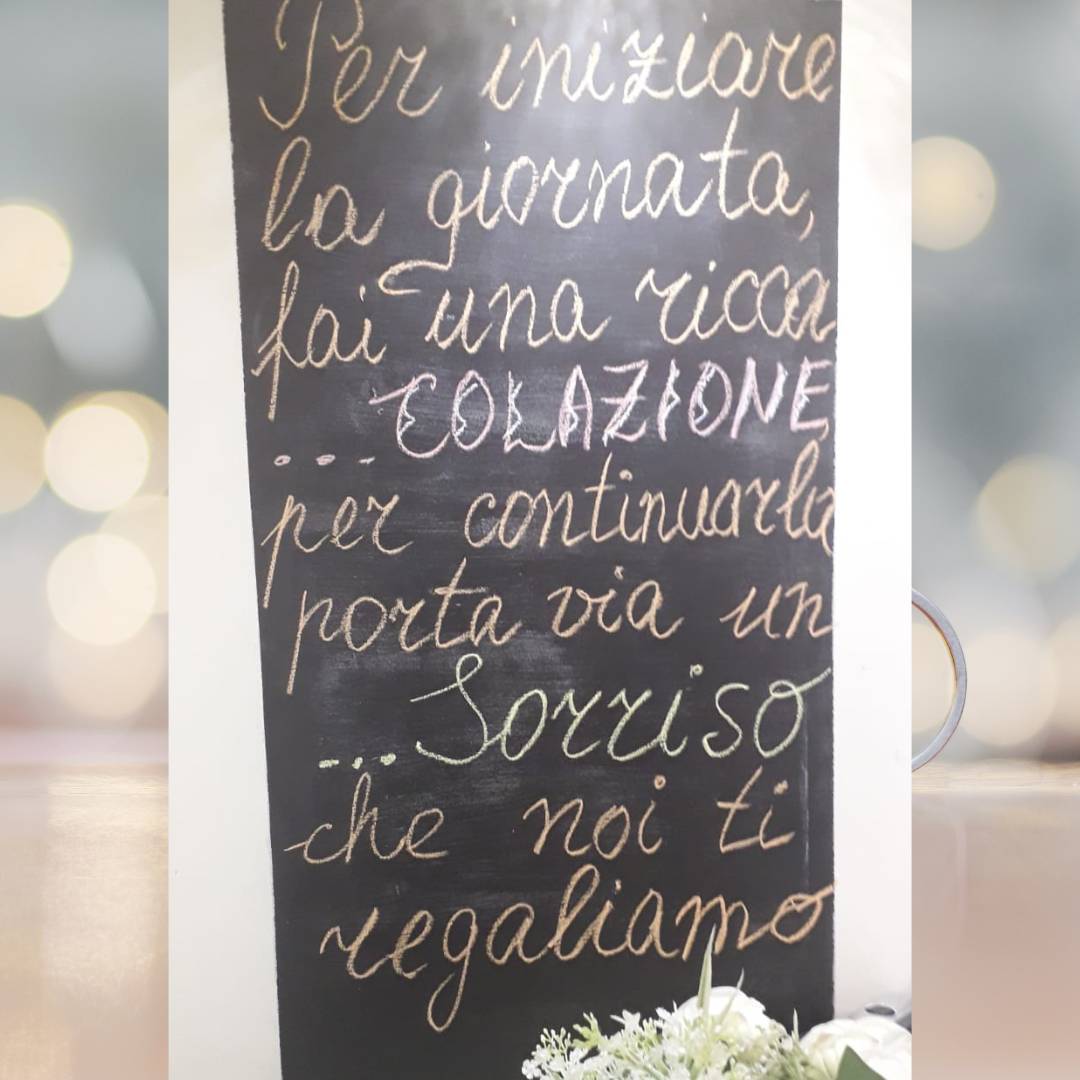 Per iniziare
la giornata,
fai una ricca
... COLAZIONE
per continuarla
porta via un
... Sorriso
che noi ti
regaliamo